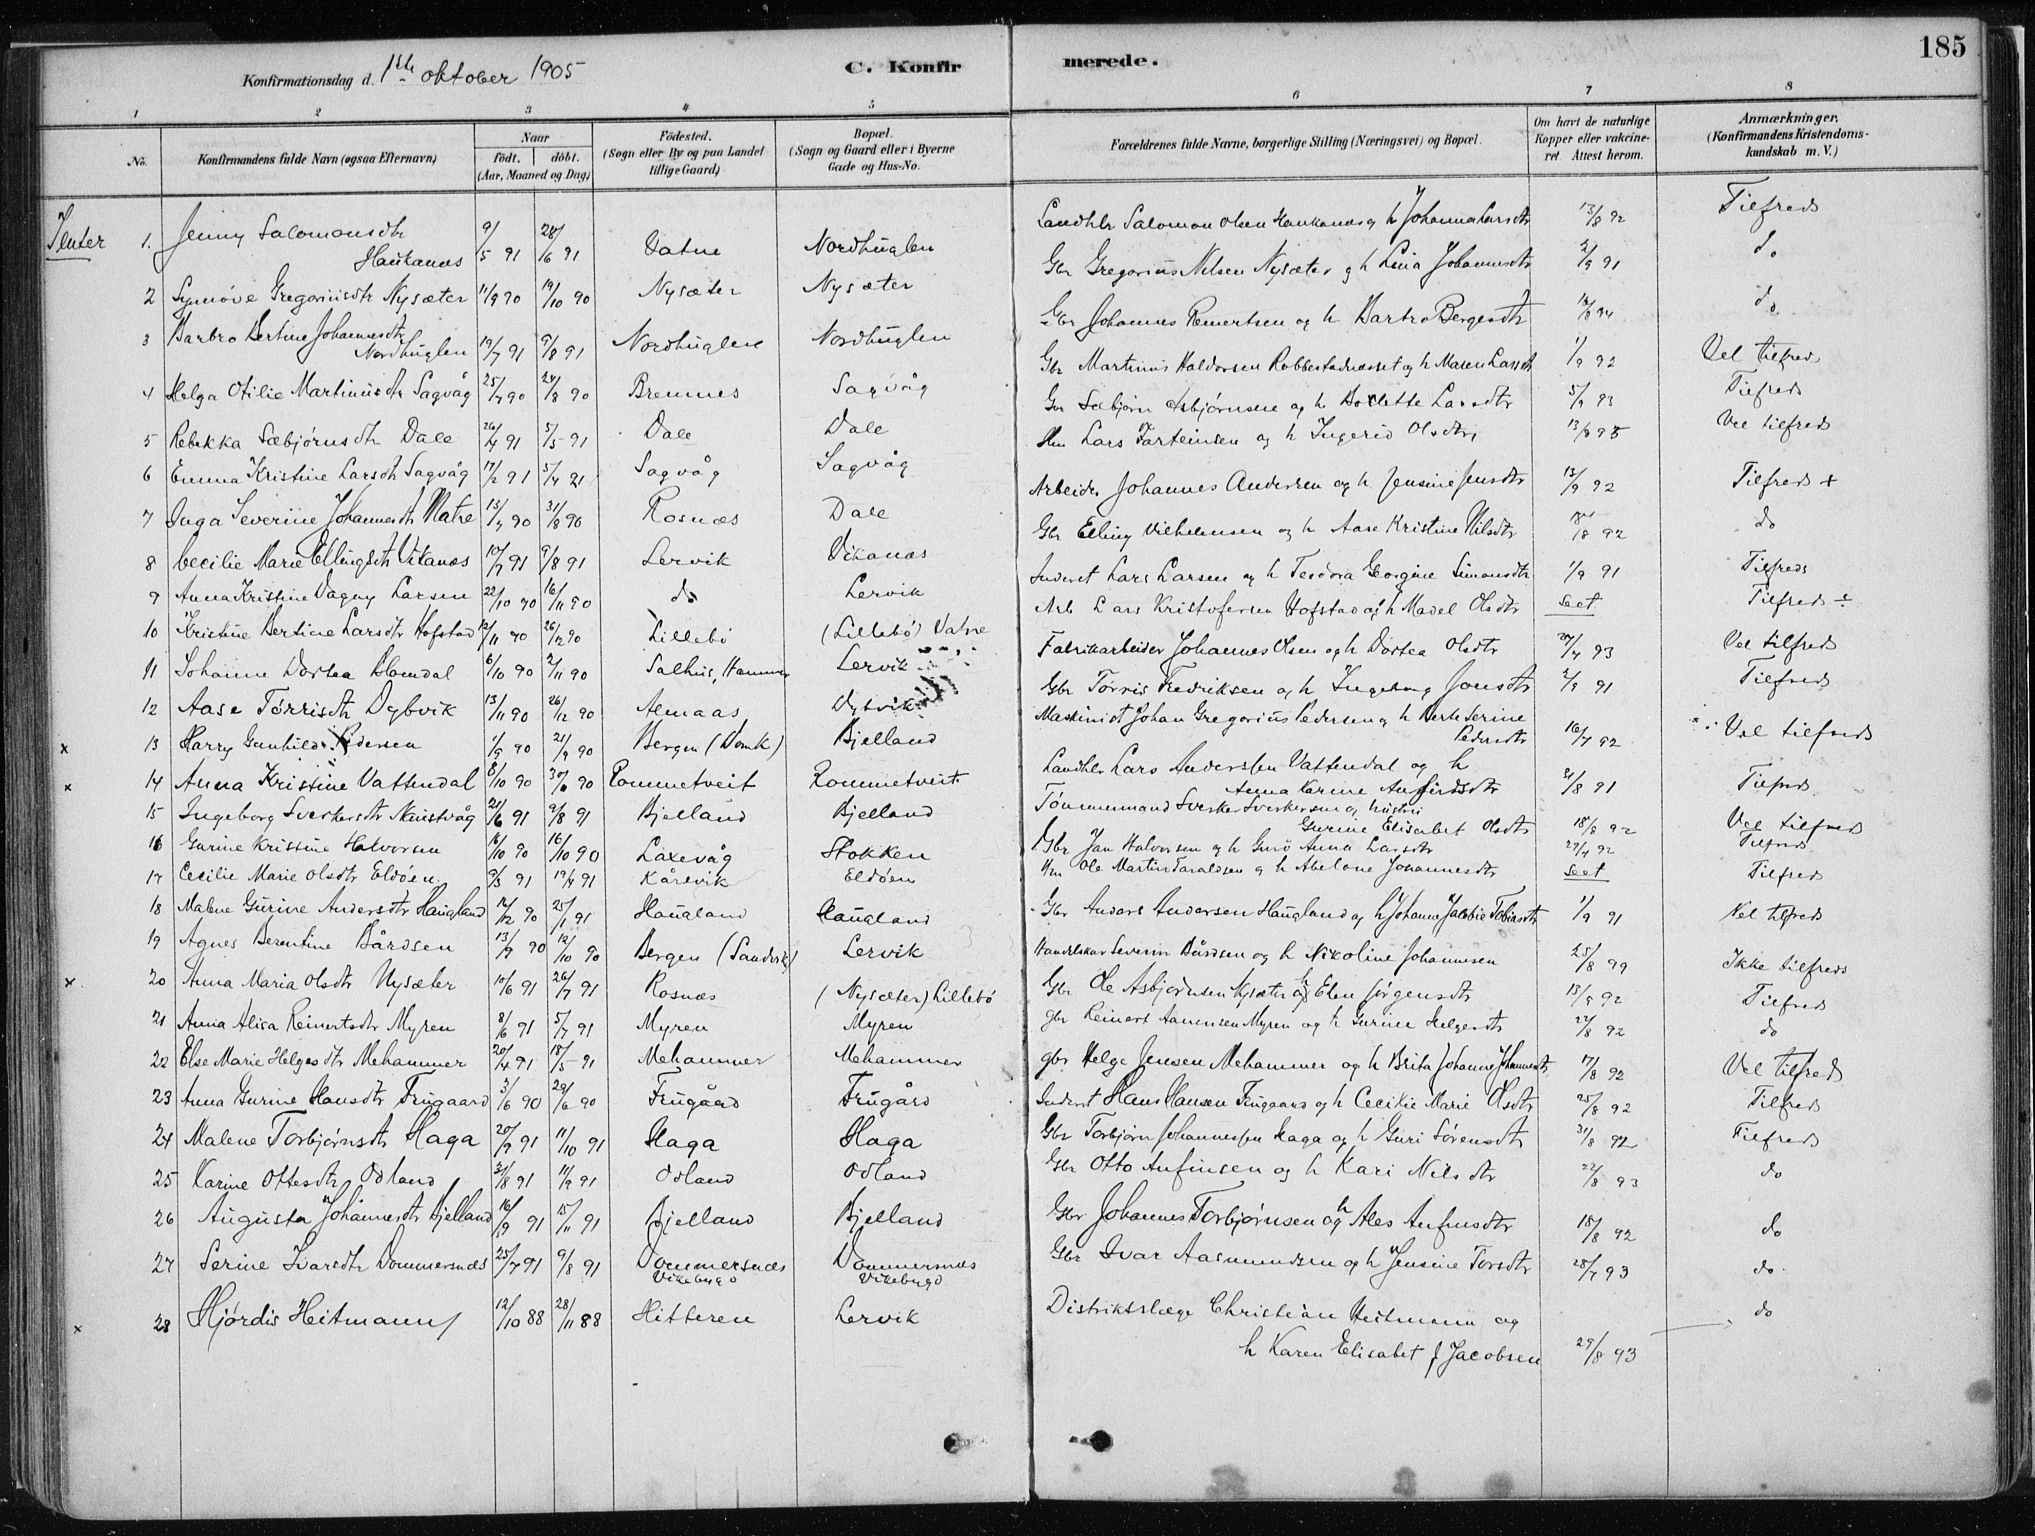 185
Konfirmationsdag d. 1ste oktober 1905
C. Konfirmerede.
1 2 3 4 5 6 7 8
No.
Konfirmandens fulde Navn (ogsaa Efternavn)
Naar
født. døbt.
(Aar, Maaned og Dag)
Fødested.
(Sogn eller By og paa Landet
tillige Gaard)
Bopæl.
(Sogn og Gaard eller i Byerne
Gade og Hus-No.
Forældrenes fulde Navne, borgerlige Stilling (Næringsvei) og Bopæl.
Om havt de naturlige
Kopper eller vakcine-
ret. Attest herom.
Anmærkninger.
(Konfirmandens Kristendoms-
kundskab m. V.)
Jenter
1. Jenny Salomonsdtr Haukanæs 9/5 91 28/6 91 Vatne Nordhuglen Landhlr Salomon Olsen Haukanæs og h Johanna Larsdtr 13/8 92 Tilfreds
2 Synnøve Gregoriusdtr Nysæter 11/9 90 19/10 90 Nysæter Nysæter Gbr Gregorius Nilsen Nysæter og h Lina Johannesdtr 2/9 91 do
3 Barbro Bertine Johannesdtr Nordhuglen 19/7 91 9/8 91 Nordhuglen Nordhuglen Gbr Johannes Reinertsen og h Barbro Børgesdtr 18/8 94 do
4 Helga Otilie Martinusdtr Sagvåg 25/7 90 24/8 90 Bremnes Sagvåg Gbr Martinus Haldorsen Robbestadnesset og h Maren Larsdtr 1/9 92 Vel tilfreds
5 Rebekka Sæbjørnsdtr Dale 26/4 91 5/5 91 Dale Dale Gbr Sæbjørn Asbjørnsen og h Bolette Larsdtr 5/9 93 Tilfreds
6 Emma Kristine Larsdtr Sagvåg 17/2 91 5/4 91 Sagvåg Sagvåg Hm Lars Torteinsen og h Ingerid Olsdtr 13/8 95 Vel tilfreds
7 Inga Severine Johannesdtr Matre 13/7 90 31/8 90 Rosnæs Dale Arbeider Johannes Andersen og h Jensine Jensdtr 13/9 92 Tilfreds +
8 Cecilie Marie Ellingsdtr Vikanæs 10/7 91 9/8 91 Lervik Vikanæs Gbr Elling Vilhelmsen og h Aase Kristine Nilsdtr 18/8 92 do
9 Anna Kristine Dagny Larsen 22/10 90 16/11 90 do Lervik Inderst Lars Larsen og h Teodora Georgine Simonsdtr 1/9 91 Tilfreds
10 Kristine Bertine Larsdtr Hofstad 12/11 90 26/12 90 Lillebø (Lillebø) Vatne Arb Lars Kristofersen Hofstad og h Madel Olsdtr seet Tilfreds ÷
11 Johanne Dortea Blomdal 6/10 90 2/11 90 Salhus, Hammer Lervik Fabrikarbeider Johannes Olsen og h Dortea Olsdtr 27/7 93 Vel tilfreds
12 Aase Tørrisdtr Dybvik 13/11 90 26/12 90 Almaas Dybvik Gbr Tørris Fredriksen og h Ingeborg Jonsdtr 2/9 91 Tilfreds
x 13 Harry Gunhilde Pedersen 1/9 90 21/9 90 Bergen (Domk) Bjelland Maskinist Johan Gregorius Pedersen og h Berte Serine Pedersdtr 16/7 92 Vel tilfreds
x 14 Anna Kristine Vattendal 8/10 90 30/11 90 Rommetveit Rommetveit Landhlr Lars Anderssen Vattendal og h Anna Karine Anfindsdtr 21/8 91 Tilfreds
15 Ingeborg Sverkersdtr Naustvåg 21/6 91 9/8 91 Bjelland Bjelland Tømmermand Sverker Sverkersen og hustru Gurine Elisabet Olsdtr 18/8 92 Vel tilfreds
16 Gurine Kristine Halvorsen 16/10 90 16/10 90 Laxevåg Stokken Gbr Jan Halvorsen og h Guro Anna Larsdtr 27/7 92 Tilfreds
17 Cecilie Marie Olsdtr Eldøen 9/3 91 19/4 91 Kårevik Eldøen Hm Ole Martin Taraldsen og h Abelone Johannesdtr seet Tilfreds
18 Malene Gurine Andersdtr Haugland 12/12 90 25/1 91 Haugland Haugland Gbr Anders Andersen Haugland og h Johanne Jacobie Tobiasdtr 1/9 91 Vel tilfreds
19 Agnes Berentine Bårdsen 13/9 90 12/10 90 Bergen (Sandvik) Lervik Handelskar Severin Bårdsen og h Nikoline Johannesen 25/8 99 Ikke tilfreds
x 20 Anna Maria Olsdtr Nysæter 10/6 91 26/7 91 Rosnæs (Nysæter) Lillebø Gbr Ole Asbjørnsen Nysæter og h Elen Jørgensdtr 13/9 92 Tilfreds
21 Anna Alisa Reinertsdtr Myren 8/6 91 5/7 91 Myren Myren gbr Reinert Aanensen Myren og h Gurine Helgesdtr 22/8 92 do
22 Else Marie Helgesdtr Mehammer 20/4 91 18/5 91 Mehammer Mehammer gbr Helge Jensen Mehammer og h Brita Johanne Johannesdtr 17/8 92 Vel tilfreds
23 Anna Gurine Hansdtr Frugaard 3/6 90 29/6 90 Frugård Frugård Inderst Hans Hansen Frugaard og h Cecilie Marie Olsdtr 25/8 92 Tilfreds
24 Malene Torbjørnsdtr Haga 20/9 91 11/10 91 Haga Haga Gbr Torbjørn Johannessen Haga og h Guri Sørensdtr 31/8 92 Tilfreds
25 Karine Ottesdtr Odland 31/8 91 11/9 91 Odland Odland Gbr Otto Anfinsen og h Kari Nilsdtr 22/8 93 do
26 Augusta Johannesdtr Bjelland 16/9 91 15/11 91 Bjelland Bjelland Gbr Johannes Torbjørnsen og h Ales Anfinsdtr 18/8 92 do
27 Serine Ivarsdtr Dommersnæs 25/7 91 9/8 91 Dommersnæs Vikebygd Dommersnæs Vikebygd Gbr Ivar Aasmundsen og h Jensine Torsdtr 28/7 93 do
x 28 Hjørdis Heitmann 12/10 88 28/11 88 Hitteren Lervik Distriktslæge Christian Heitmann og h Karen Elisabet f Jacobsen 29/8 93 do